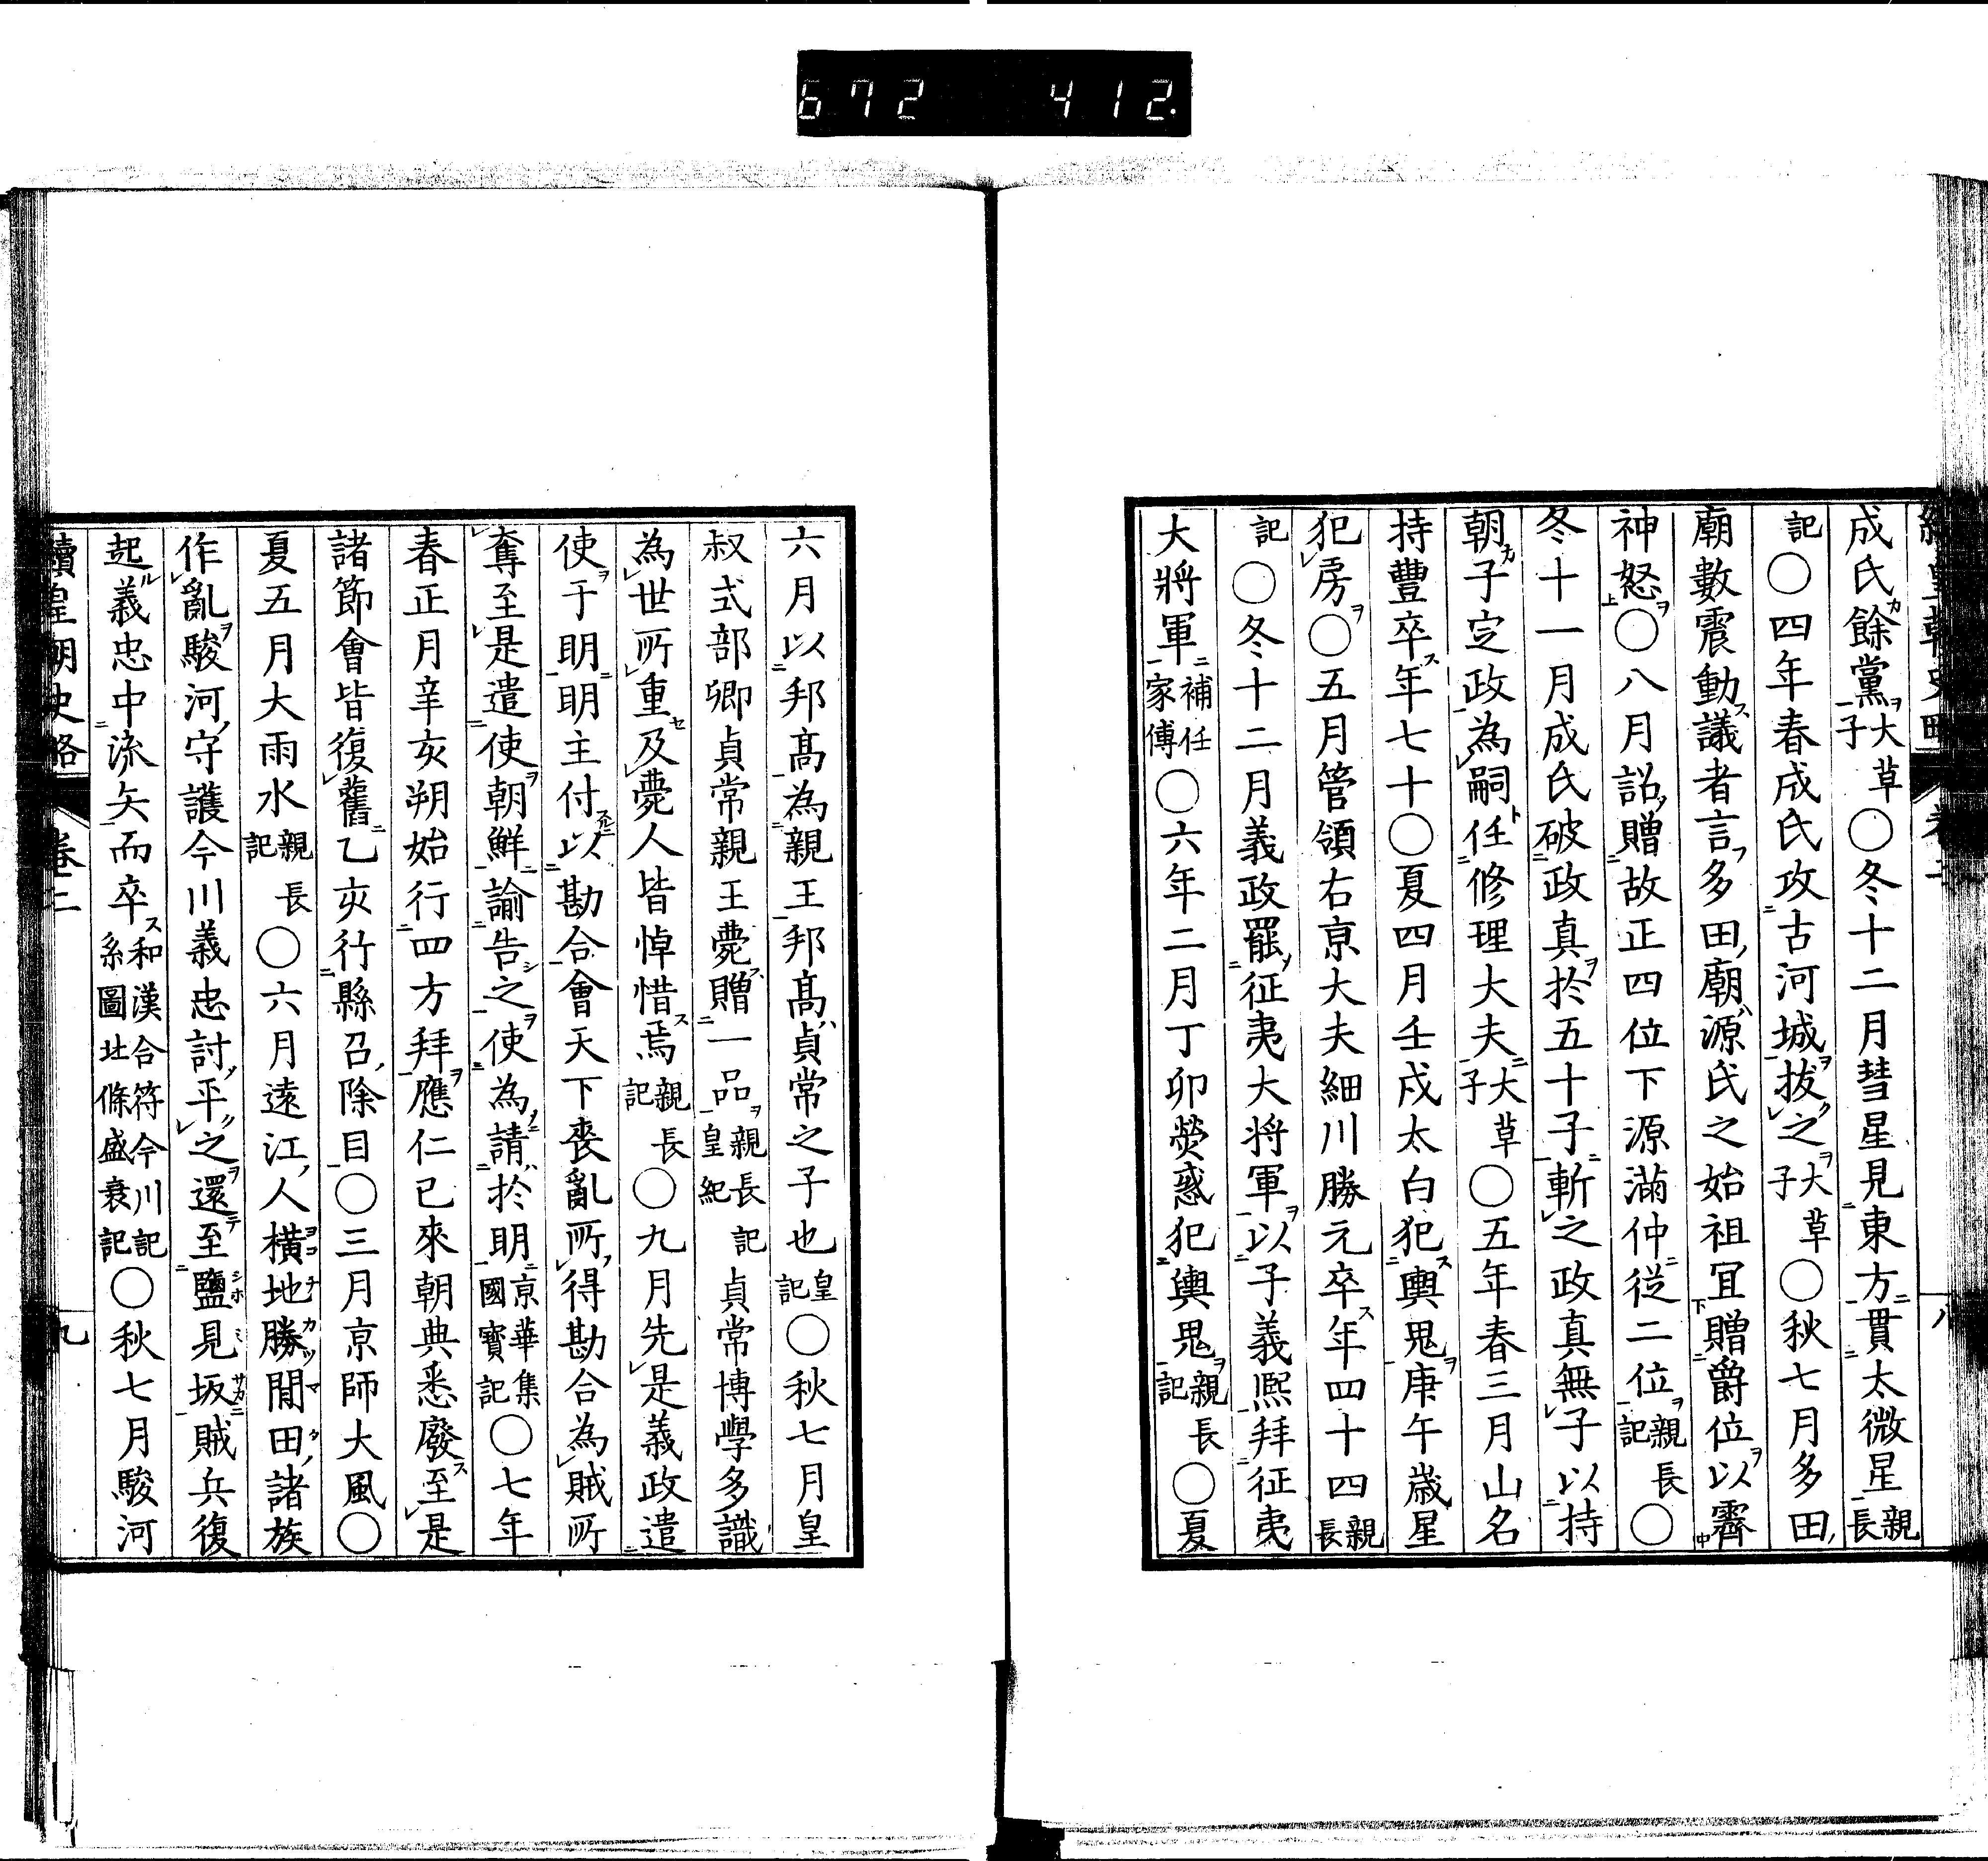 672 412.
成氏餘黨大草子○冬十二月彗星見東方貫太微星親長
記○四年春成氏攻古河城拔之大草子○秋七月多田
廟數震動議者言多田廟源氏之始祖宜贈爵位以霽
神怒○八月詔贈故正四位下源滿仲從二位親長記○
冬十一月成氏破政真於五十子斬之政真無子以持
朝子定政為嗣任修理大夫大草子○五年春三月山名
持豐卒年七十○夏四月壬戌太白犯輿鬼庚午歲星
犯房○五月管領右京大夫細川勝元卒年四十四親長
記○冬十二月義政罷征夷大将軍以子義熙拜征夷
大將軍補任家傳○六年二月丁卯熒惑犯輿鬼親長記○夏
六月以邦高為親王邦高貞常之子也皇記○秋七月皇
叔式部卿貞常親王薨贈一品親長記皇紀貞常博學多識
為世所重及薨人皆悼惜焉親長記○九月先是義政遣
使于明明主付以勘合會天下喪亂所得勘合為賊所
奪至是遣使朝鮮諭告之使為請於明京華集國寶記○七年
春正月辛亥朔始行四方拜應仁已來朝典悉廢至是
諸節會皆復舊乙亥行縣召除目○三月京師大風○
夏五月大雨水親長記○六月遠江人橫地勝間田諸族
作亂駿河守護今川義忠討平之還至鹽見坂賊兵復
起義忠中流矢而卒和漢合符今川記系圖北條盛衰記○秋七月駿河
續皇朝史略 卷二 九